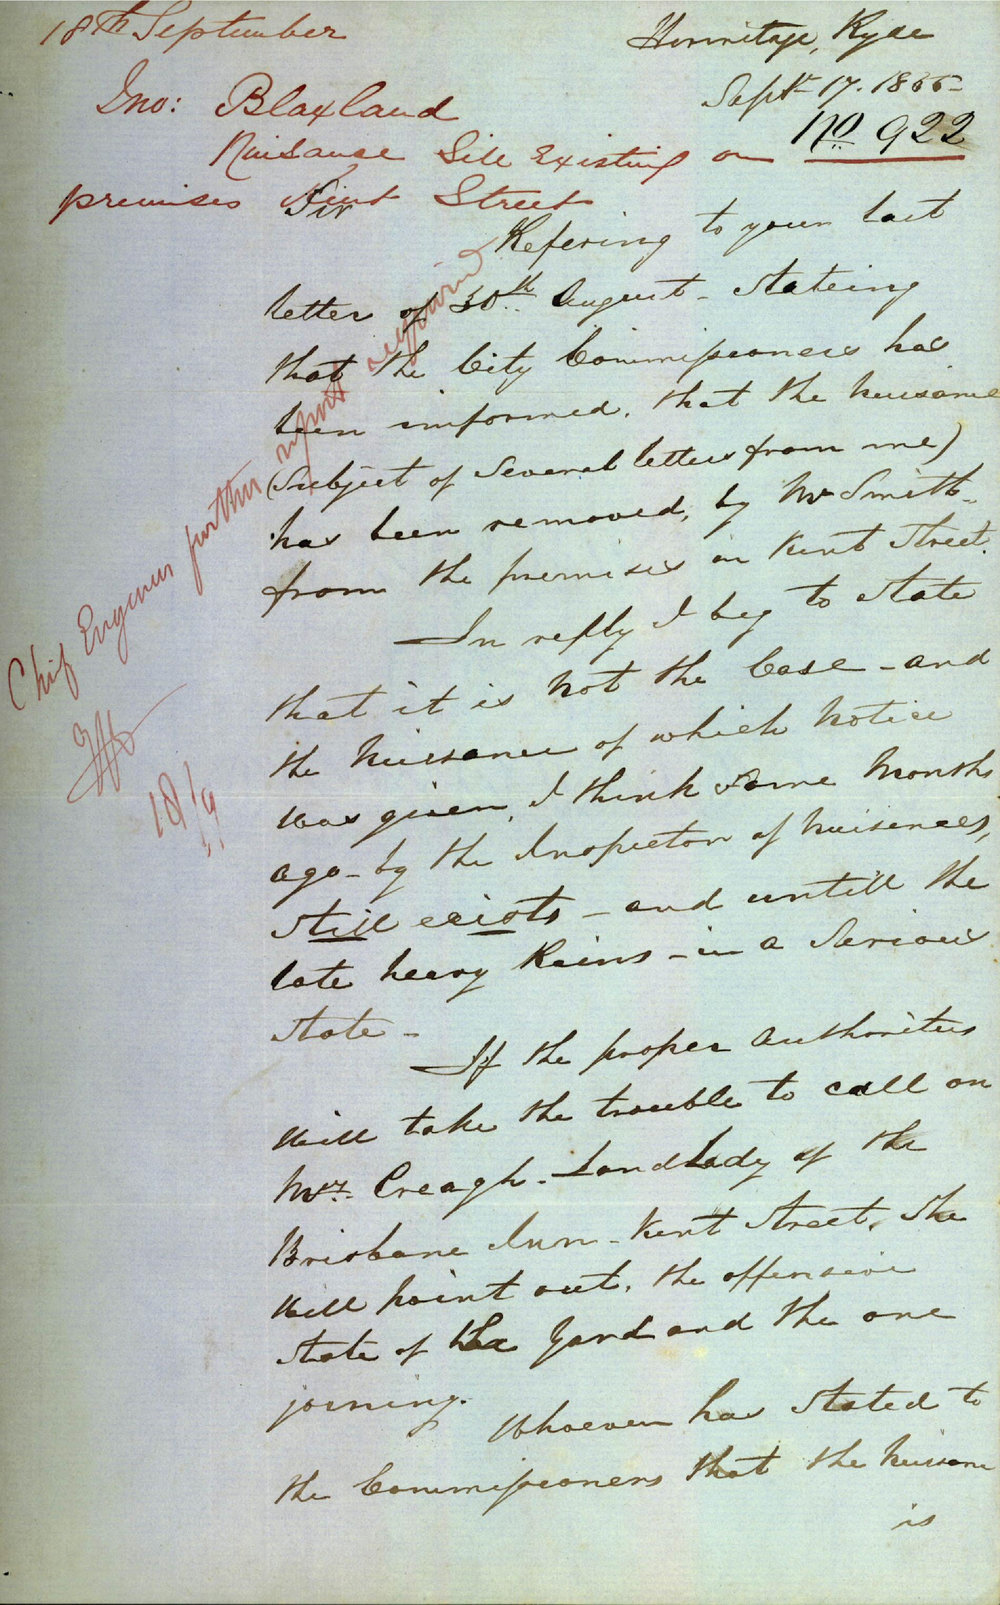 18th September
Hermitage, Ryde
Sept 17. 1855
Jno: Blaxland
No 922
Nuisance Still Existing on
premises Kent Street
Sir
Refering to your last
letter of 30th August - stateing
that the City Commissioners has
been informed, that the nuisance
(Subject of several letters from me)
has been removed, by Mr Smith -
from the premises in Kent Street.
In reply I beg to state
that it is not the Case - and
the nuissance of which notice
was given, I think some months
ago - by the Inspector of nuisences,
still exists - and untill the
late heavy Rains - in a serious
state -
If the proper authorities
will take the trouble to call on
Mrs Creagh - LandLady of the
Brisbane Inn - Kent Street, she
will point out, the offensive
state of the Yard and the one
joining.
Whoever has stated to
the Commissioners that the nuissance
is
Chief Engineer further report required
18/9